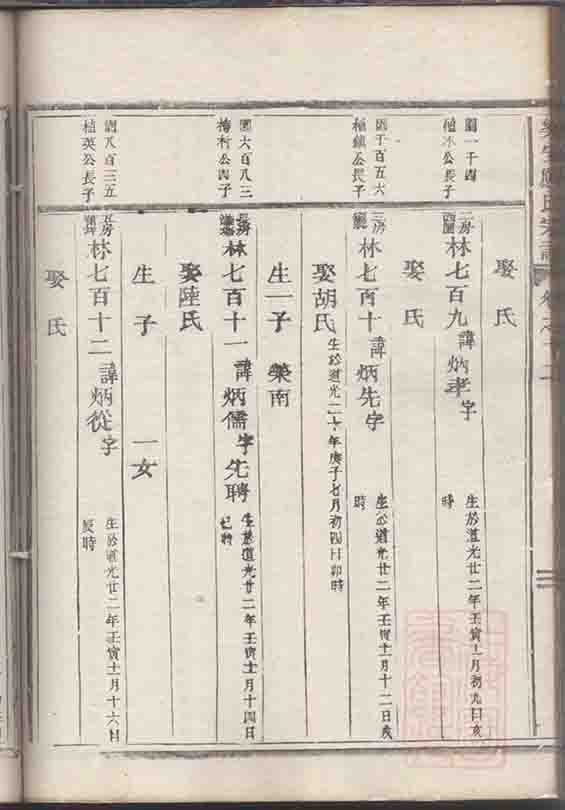 娶氏
園一千四
公長子
二房
林七百九 諱炳孝字
生於道光廿二年壬寅十一月初九日亥時
娶氏
園千百五六
植鎮公長子
三房
林七百十 諱炳先字
生於道光廿二年壬寅十一月十二日亥時
娶胡氏 生於道光二十年庚子七月初四日卯時
生一子 榮南
園六百八三
梅村公四子
長房
林七百十一 諱炳儒字先聘
生於道光廿二年壬寅十一月十四日巳時
娶陸氏
生子 一女
園八百三五
植英公長子
五房
林七百十二 諱炳從字
生於道光廿二年壬寅十一月十六日辰時
娶氏